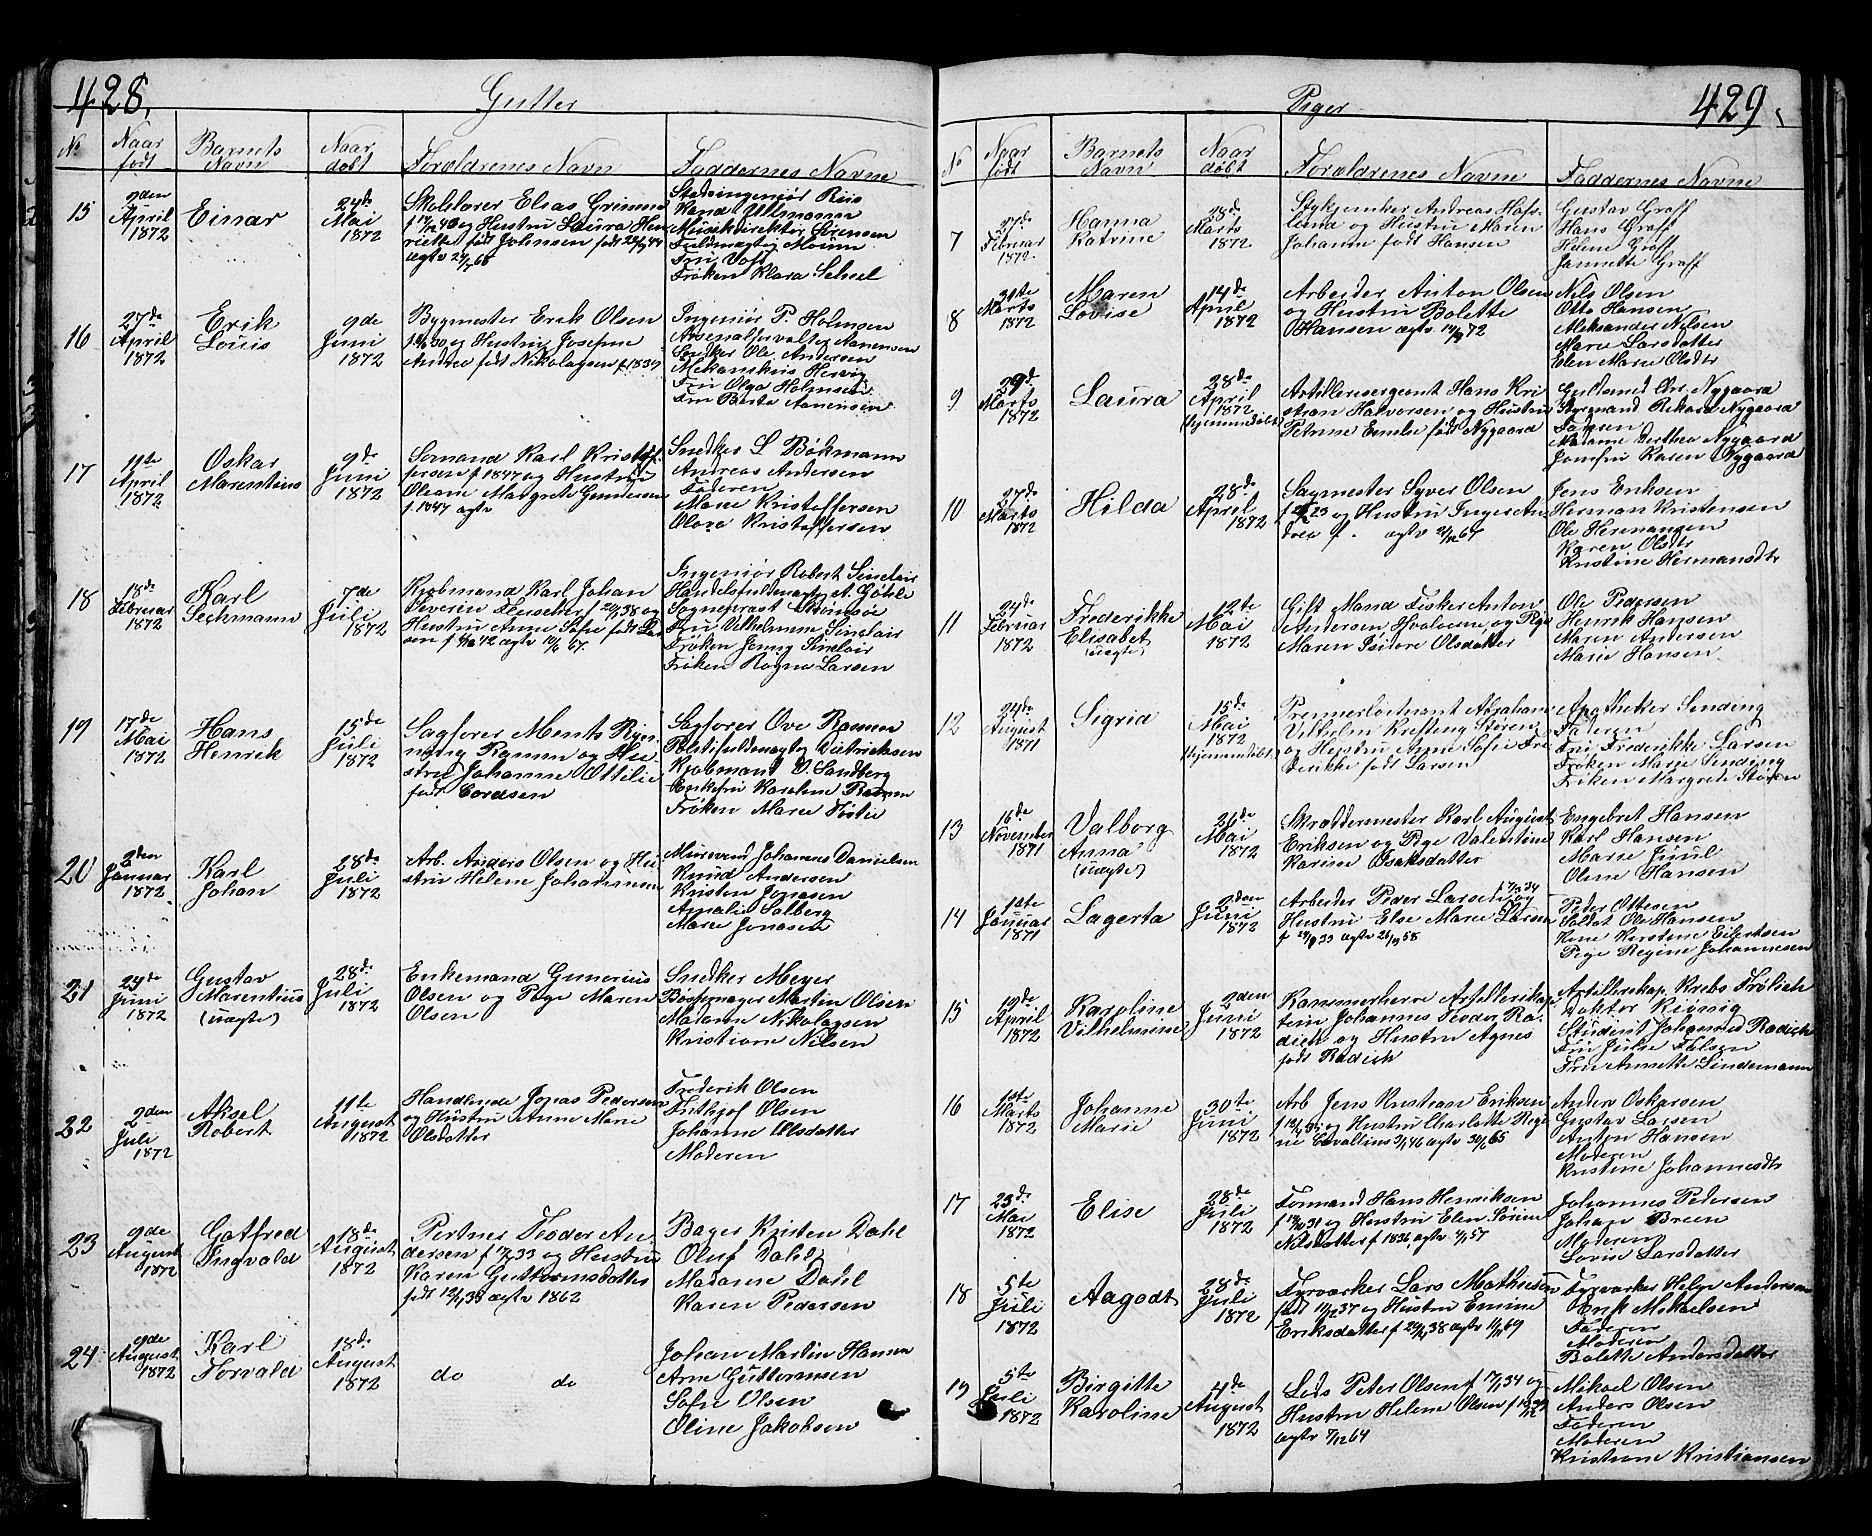 428.
Gutter
No
Naar født
Barnets Navn
Naar døbt
Forældrenes Navn
Faddernes Navne
15
den April 1872
Einar
24de Mai 1872
Skolelærer Elias
og Hustru Laura Hen-
riette født Johnsen født
ægtv
Stadsingeniør Riis
Kand. Ullmann
Musikdirektør Sørensen
Fuldmægtig Moum
Fru Voss
Frøken Klara Scheel
16
27de April 1872
Erik
Louis
9de Juni 1872
Bygmester Erik Olsen
og Hustru Josefine
Andrea født Nikolaysen f. 1839
Ingeniør P. Holmsen
Arsenalforvalter Aanensen
Snedker Ole Andersen
Mekanikus Hervig
Fru Olga Holmsen
Fru Berta Aanensen
17
11te April 1872
Oskar
Marentius
9de Juni 1872
Sømand Karl Kristof-
fersen f 1847 og Hustru
Oleane Margrete Gundersen
f. 1847 ægtv
Snedker L Bøkmann
Andreas Andersen
Faderen
Marie Kristoffersen
Olava Kristoffersen
18
18de Februar 1872
Karl
Sechmann
7de Juli 1872
Kjøbmand Karl Johan
Severin Fleischer f 20/ 38 og
Hustru Anne Sofie født Lar-
sen f 42 ægtv 67.
Ingeniør Robert Sinclair
Handelsfuldmægt. A. Gøhle
Sogneprest
Fru Vilhelmine Sinclair
Frøken Jenny Sinclair
Frøken Ragna Larsen
19
17de Mai 1872
Hans
Henrik
15de Juli 1872
Sagfører Ments Ryn-
ning Rynnin og Hu-
stru Johanne Ottilie
født Cordsen
Sagfører Ove
Politifuldmægtig Diderichsen
Kjøbmand O. Sandberg
Enkefru Karoline
Frøken Maren
20
2den Januar 1872
Karl
Johan
28de Juli 1872
Arb. Anders Olsen og Hu-
stru Helene Johannesen
Murersvend Johannes Danielsen
Knud Andersen
Kristen Jonasen
Amalie Solberg
Maren Jonasen
21
24de Juni 1872
Gustav
Marentius
(uægte)
28de Juli 1872
Enkemand Gunerius
Olsen og Pige Maren
Olsen
Snedker Meyer
Martin Olsen
Madame Nikolaysen
Kristiane Nilsen
22
2den Juli 1872
Aksel
Robert
11te August 1872
Handlende Jonas Pedersen
og Hustru Anne Marie
Olsdatter
Frederik Olsen
Frithjof Olsen
Johanne Olsdatter
Moderen
23
9de August 1872
Gotfred
Ingvald
18de August 1872
Teodor An-
dersen f 33 og Hustru
Karen Guttormsdatter
født 12/ 38 ægtv 1862
Bager Kristen Dahl
Oluf Dahl
Madame Dahl
Karen Pedersen
24
9de August 1872
Karl
Torvald
18de August 1872
do do
Johan Martin Hansen
Arne Guttormsen
Sofie Olsen
Oline Jakobsen
429.
Piger
No
Naar født
Barnets Navn
Naar døbt
Forældrenes Navne
Faddernes Navne
7
27de Februar 1872
Hanna
Katrine
28de Marts 1872
Stykjunker Andreas Hafs-
lund og Hustru Maren
Johanne født Hansen
Gustav Graff
Hans Graff
Helene Graff
Jannette Graff
8
31te Marts 1872
Maren
Lovise
14de April 1872
Arbeider Anton Olsen
og Hustru Bolette
Hansen ægtv 14/ 72
Nils Olsen
Otto Hansen
Aleksander Nilsen
Marie Larsdatter
Elen Marie Olsdtr
9
29de Marts 1872
Laura
28de April 1872
Hjemmedøbt
Artillerisergeant Hans Kri-
stian Halvorsen og Hustru
Petrine Emilie født Nygaard
Guldsmed Chr. Nygaard
Styrmand Rikard Nygaard
Faderen
Madame Dorthea Nygaard
Jomfru Karen Nygaard
10
27de Marts 1872
Hilda
28de April 1872
Sagmester Syver Olsen
f 23 og Hustru Inger An-
drea f. ægtv 21/12 67
Jens Eriksen
Herman Kristensen
Ole Hermansen
Karen Olsdtr
Kristine Hermansdtr
11
24de Februar 1872
Frederikke
Elisabet
(uægte)
12te Mai 1872
Gift Mand Fisker Anton
Andersen Hvaløen og Pige
Maren Isidore Olsdatter
Ole Pedersen
Henrik Hansen
Maren Andersen
Marie Hansen
12
24de August 1871
Sigrid
15de Mai 1872
Hjemmedøbt
Premierløitnant Abraham
Vilhelm Krefting Støren
og Hustru Anne Sofie Fre-
derikke født Larsen
Apotheker Sending
Faderen
Fru Frederikke Larsen
Frøken Marie Sending
Frøken Margrete Støren
13
16de November 1871
Valborg
Anna
(uægte)
26de Mai 1872
Skræddermester Karl August
Eriksen og Pige Valentine
Karine Isaksdatter
Engebret Hansen
Karl Hansen
Marie Juul
Oline Hansen
14
1ste Januar 1871
Lagerta
2den Juni 1872
Arbeider Peder Larsen f 34 og
Hustru Else Marie Larsen
f 33 ægtv 26/ 58
Peder Ottesen
Soldat Ole Hansen
Kone Kerstine Eilertsen
Pige Regine Johannesen
15
19de April 1872
Karoline
Vilhelmine
2den Juni 1872
Kammerherre Artillerikap-
tein Johannes Teodor Ra-
dich og Hustru Agnes
født Radich
Artillerikap. Krebs Frølich
Doktor Kiønig
Student Johannes Radich
Fru Julie Fulsen
Fru Annette Lindemann
16
1ste Marts 1872
Johanne
Marie
30te Juni 1872
Arb Jens Kristian Eriksen
og Hustru Charlotte Regi-
ne Cavallius 46 ægtv 30/ 65
Anders Oskarsen
Gustav Larsen
Anton Hansen
Moderen
Kristine Johannesdtr
17
23de Mai 1872
Elise
28de Juli 1872
Formand Hans Henriksen
f 31 og Hustru Elen Sørine
Nilsdatter f 1836, ægtv 57
Johannes Pedersen
Johan Breen
Moderen
Lovise Larsdatter
18
5te Juli 1872
Aagodt
28de Juli 1872
Fyrværker Lars Mathiesen
født 37 og Hustru Emine
Eriksdatter f 38 ægtv 69
Fyrværker Helge Andersen
Erik Mikaelsen
Faderen
Moderen
Bolette Andersdatter
19
5te Juli 1872
Birgitte
Karoline
4de August 1872
Lods Peter Olsen f 34 og
Hustru Helene Olsen f
ægtv 7/12 64
Mikael Olsen
Anders Olsen
Faderen
Moderen
Kristiane Kristiansen